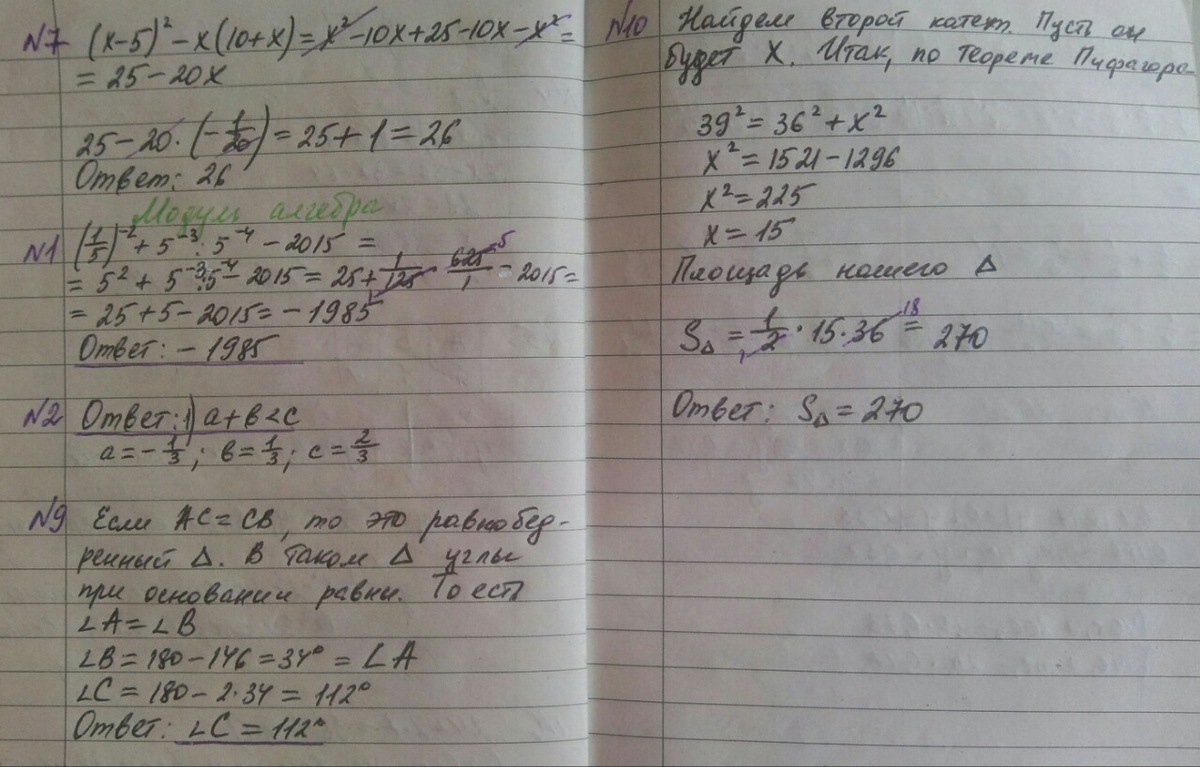 N7 (x-5)² - x(10+x) = x² - 10x + 25 - 10x - x² =
= 25 - 20x
25 - 20 · (-1/20) = 25 + 1 = 26
Ответ: 26
Модул алгебра
N1 (1/5)⁻² + 5⁻³ : 5⁻⁴ - 2015 =
= 5² + 5⁻³ : 5⁻⁴ - 2015 = 25 + 1/125 · 625/1 - 2015 =
= 25 + 5 - 2015 = -1985
Ответ: -1985
N2 Ответ: 1) a + b < c
a = -1/3; b = 1/3; c = 2/3
N9 Если AC = CB, то это равнобед-
ренный Δ. В таком Δ углы
при основании равны. То есть
∠A = ∠B
∠B = 180 - 146 = 34° = ∠A
∠C = 180 - 2·34 = 112°
Ответ: ∠C = 112°
N10 Найдем второй катет. Пусть он
будет X. Итак, по теореме Пифагора
39² = 36² + x²
x² = 1521 - 1296
x² = 225
x = 15
Площадь нашего Δ
S_Δ = 1/2 · 15 · 36 18 = 270
Ответ: S_Δ = 270